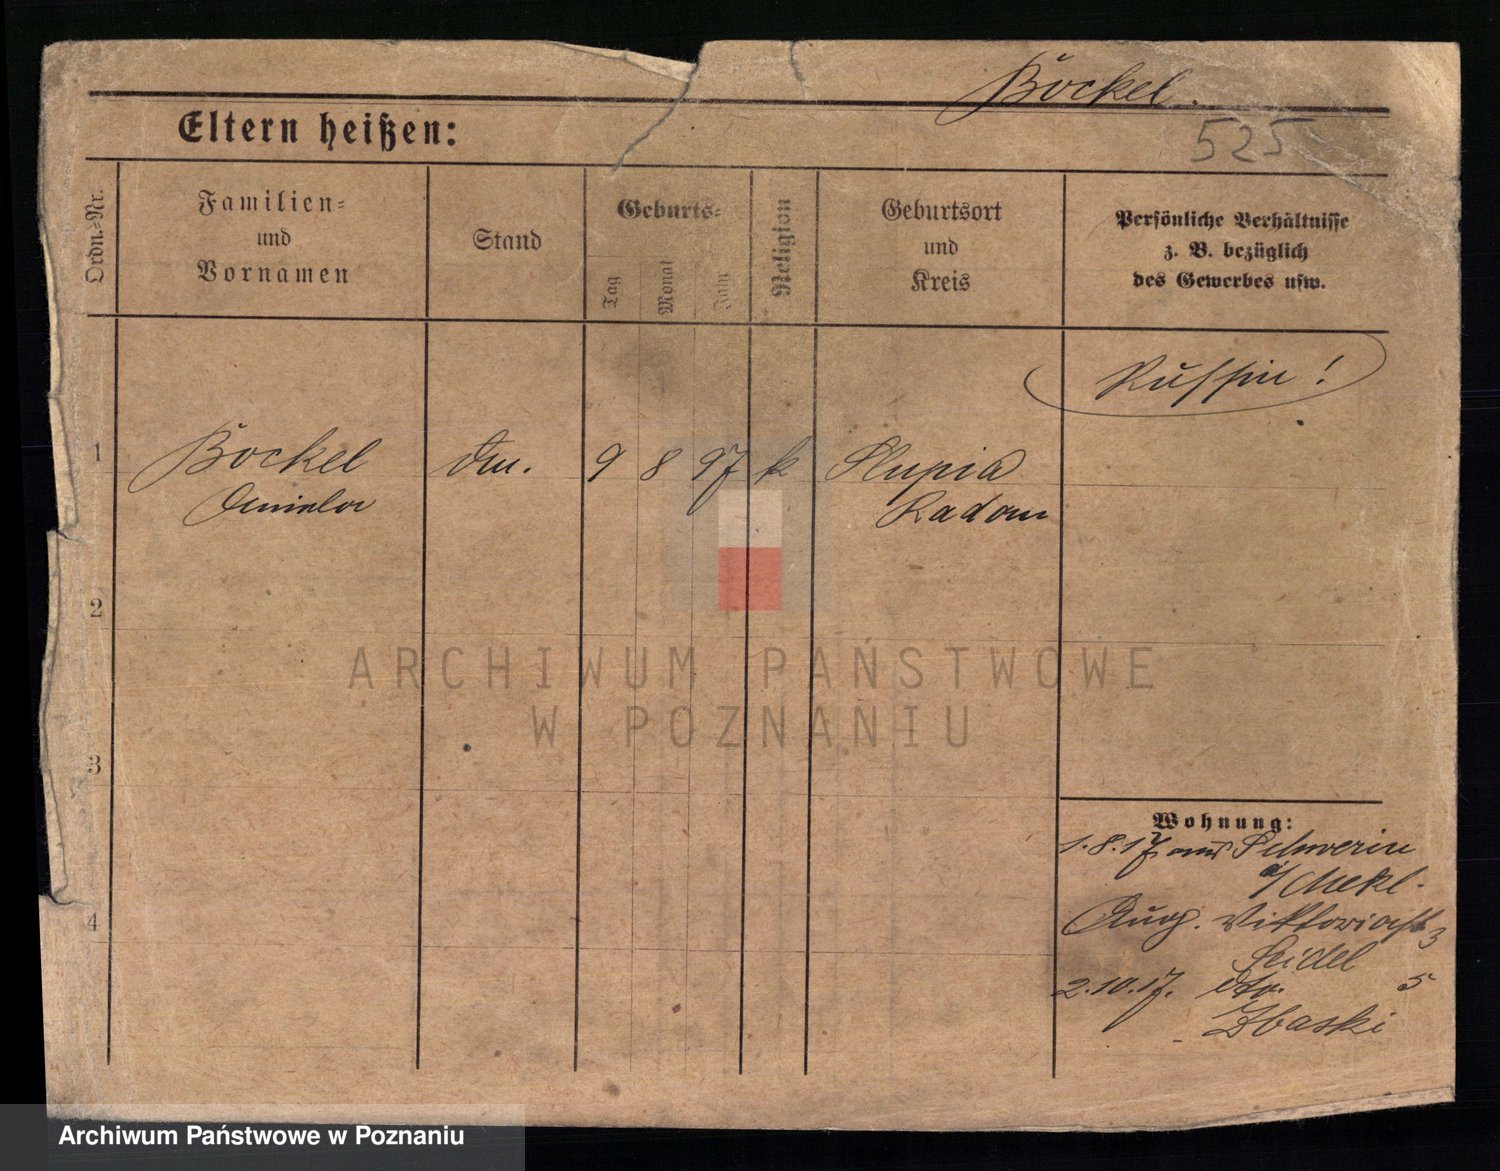 Böckel.
525
Eltern heißen:
Ordn.-Nr.
Familien-
und
Vornamen
Stand
Geburts-
Tag
Monat
Jahr
Religion
Geburtsort
und
Kreis
Persönliche Verhältnisse
z. B. bezüglich
des Gewerbes usw.
Russin!
1 Böckel 9 8 97 k Slupia
Radom
2
3
4
Wohnung:
1.8.17 aus Schwerin
i/Mekl.
Aug. Viktoriastr 3
Seidel
2.10.17. dto. 5
Zbaski
ARCHIWUM PAŃSTWOWE
W POZNANIU
Archiwum Państwowe w Poznaniu